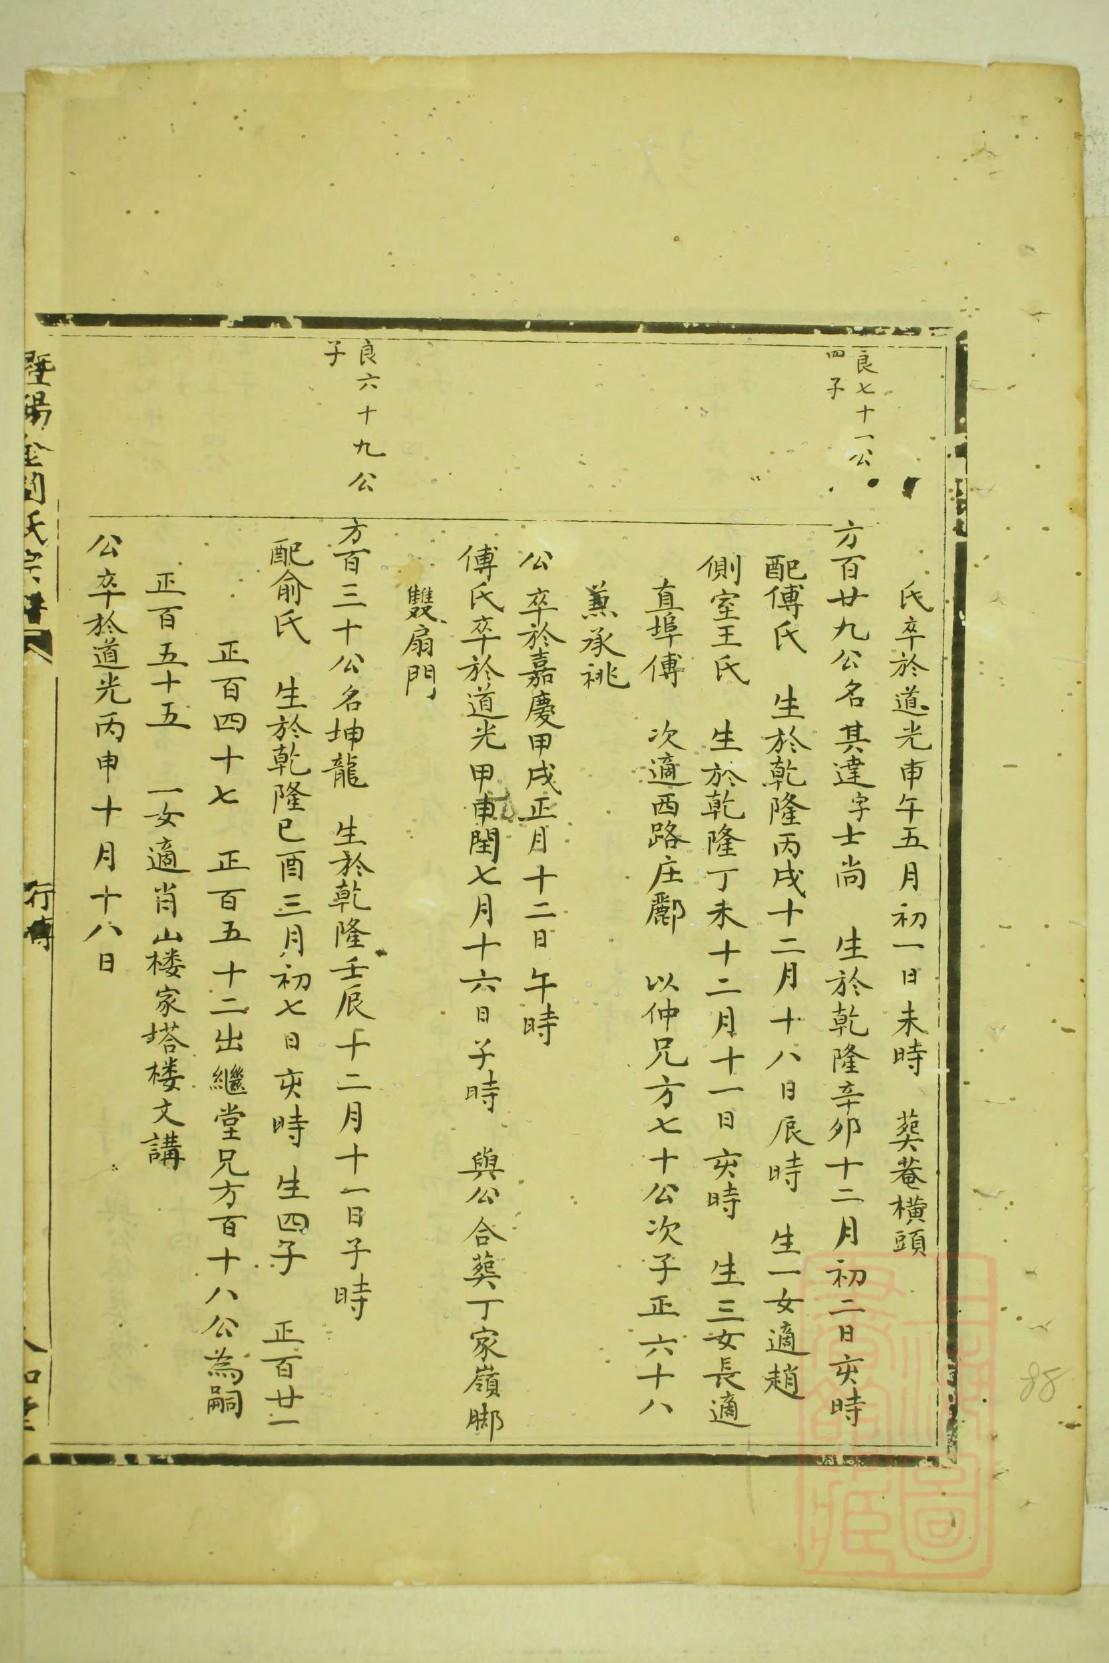 良七十一公
四子
氏卒於道光甲午五月初一日未時　葬菴橫頭
方百廿九公名其達字士尚　生於乾隆辛卯十二月初二日亥時
配傅氏　生於乾隆丙戌十二月十八日辰時　生一女適趙
側室王氏　生於乾隆丁未十二月十一日亥時　生三女長適
直埠傅　次適西路庄酈　以仲兄方七十公次子正六十八
兼承祧
公卒於嘉慶甲戌正月十二日午時
傅氏卒於道光甲申閏七月十六日子時　與公合葬丁家嶺腳
雙扇門
良六十九公
子
方百三十公名坤龍　生於乾隆壬辰十二月十一日子時
配俞氏　生於乾隆己酉三月初七日亥時　生四子　正百廿一
正百四十七　正百五十二出繼堂兄方百十八公為嗣
正百五十五　一女適肖山楼家塔楼文講
公卒於道光丙申十月十八日
暨陽金澗氏宗譜
行傳
88